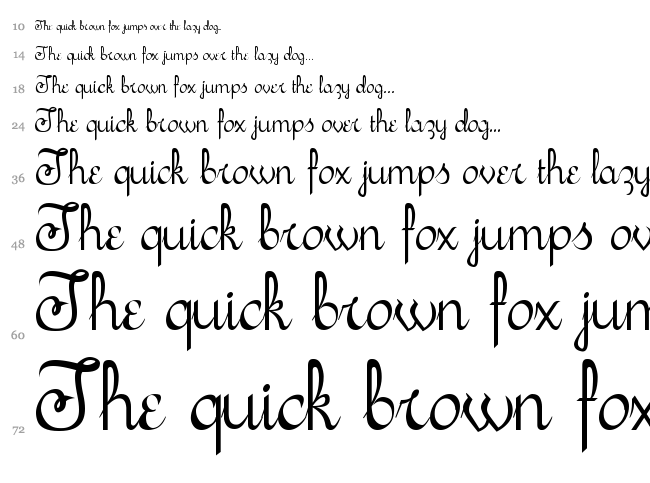 10 The quick brown fox jumps over the lazy dog.
14 The quick brown fox jumps over the lazy dog...
18 The quick brown fox jumps over the lazy dog...
24 The quick brown fox jumps over the lazy dog...
36 The quick brown fox jumps over the lazy
48 The quick brown fox jumps ov
60 The quick brown fox jum
72 The quick brown fox